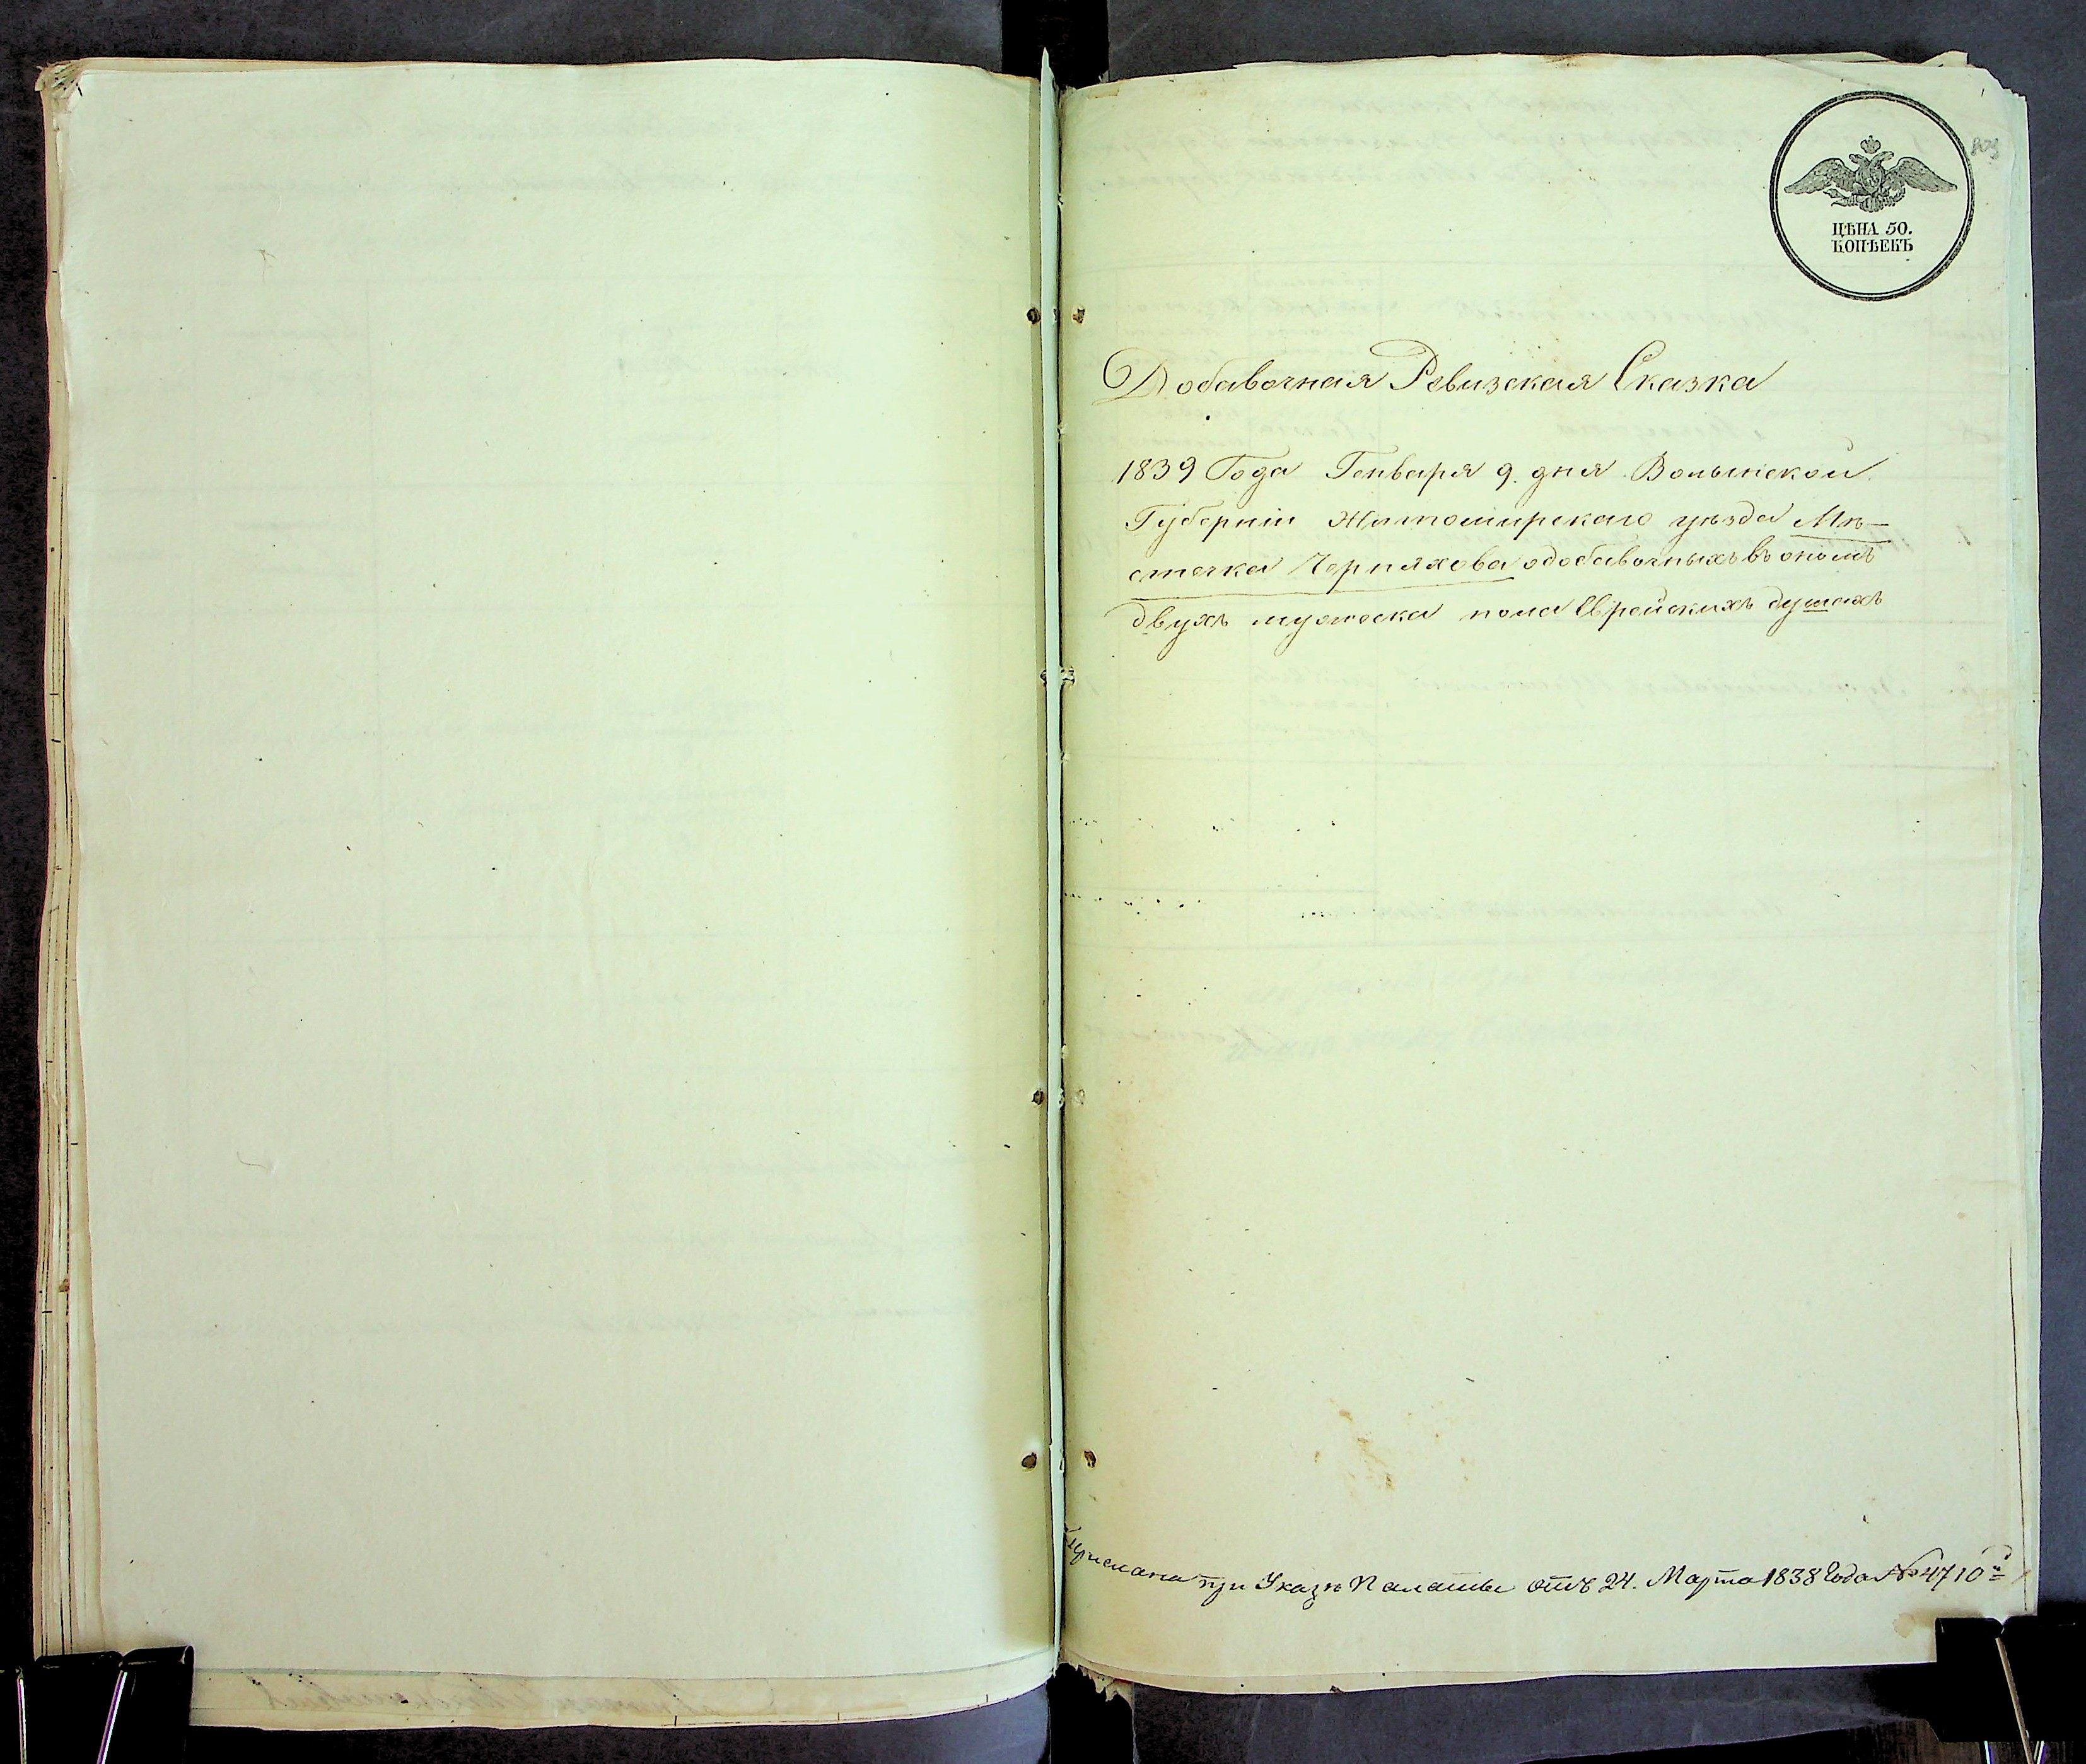 ЦѢНА 50.
КОПѢЕКЪ
Добавочная Ревизская Сказка
1839 Года Генваря 9. дня Волынской
Губерніи Житомирскаго уѣзда Мѣ-
стечка Черняхова о добавочныхъ въ ономъ
двухъ мужеска пола Еврейскихъ душахъ
Прислана при Указѣ Палаты отъ 24. Марта 1838 Года № 4710й